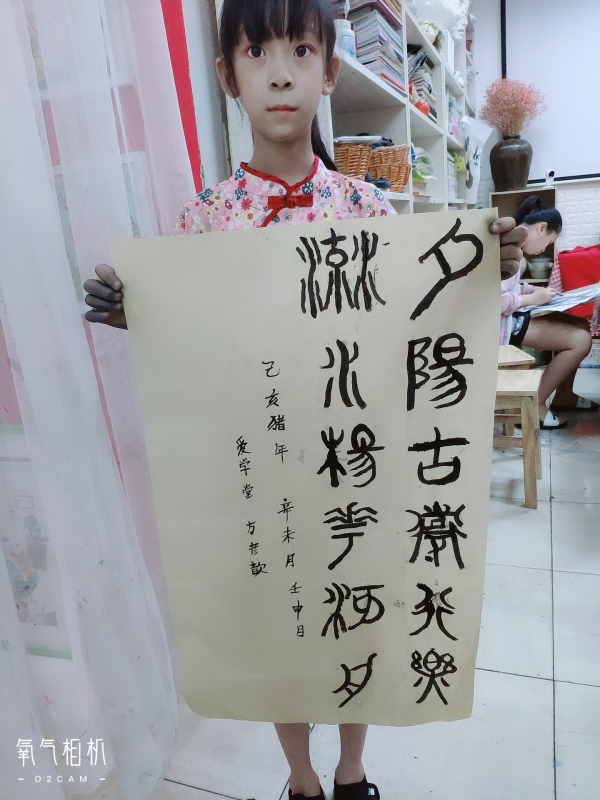 夕陽古行樂
流水楊花河月
己亥猪年 辛未月 壬申日
爱学堂 方彦歆
氧气相机
O2CAM